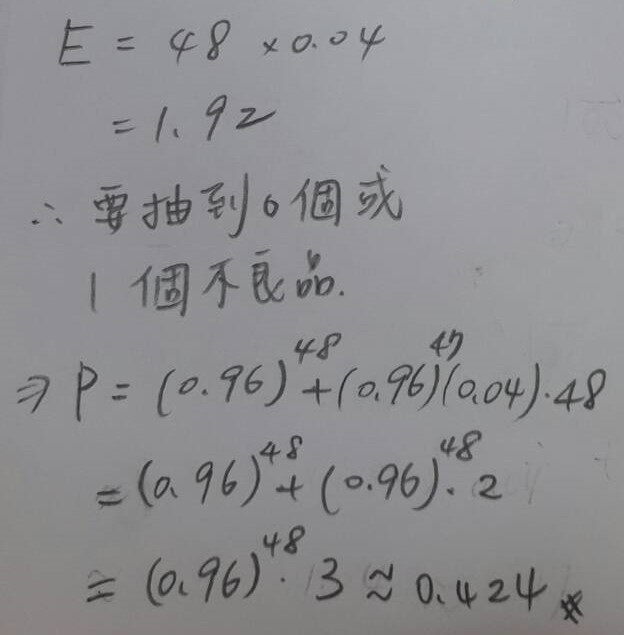 E = 48 × 0.04
= 1.92
∴ 要抽到 0 個或
1 個不良品.
⇒ P = (0.96)^48 + (0.96)^47 (0.04)·48
= (0.96)^48 + (0.96)^48 · 2
= (0.96)^48 · 3 ≈ 0.424 ※